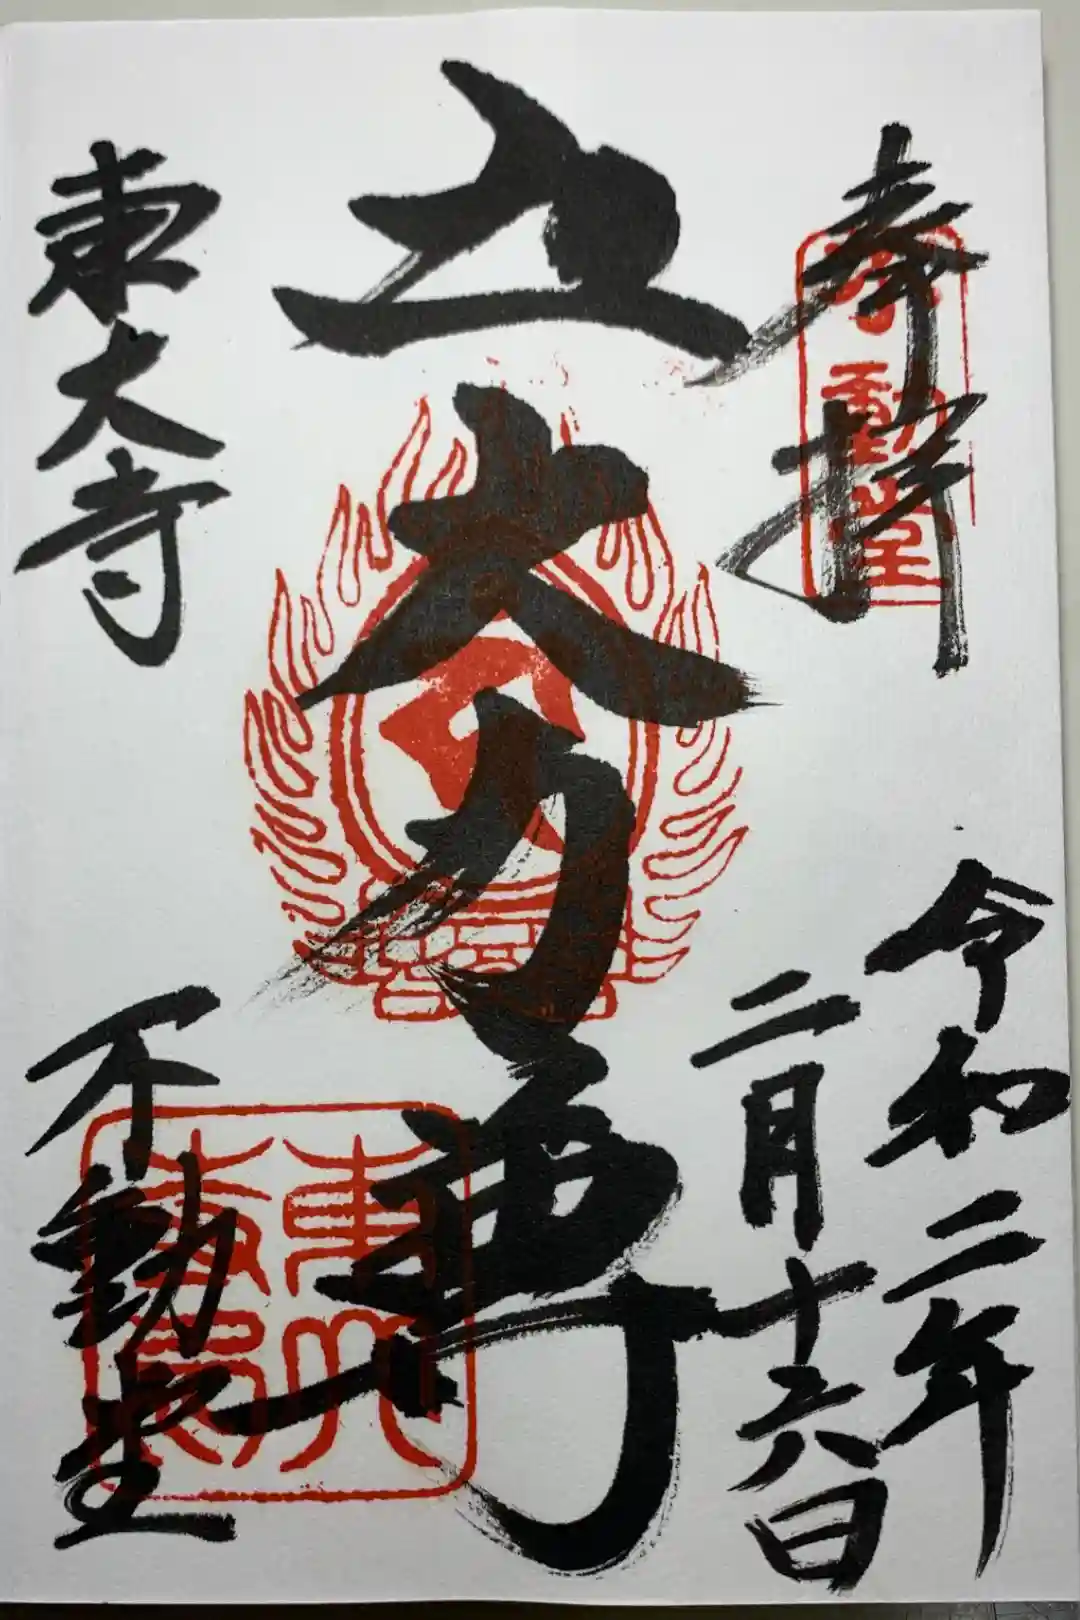 奉拝
不動堂
令和二年
二月十六日
五大力尊
東大寺
不動堂